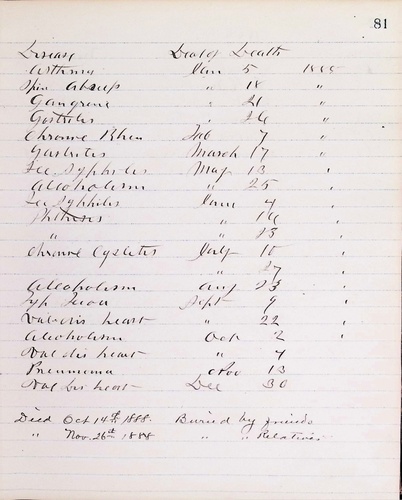 81
Disease Dat of Death
Asthma Jan 5
Spin Abscess " 18 "
Gangrene " 21 "
Gastritis " 26 "
Chronic Rheu Feb 7 "
Gastritis March 17 "
Sec. Syphilis May 13 "
Alcoholism " 25 "
Sec Syphilis June 4 "
Phthisis " 16 "
" " 23 "
Chronic Cystitis July 10 "
" 27 "
Alcoholism Aug 23 "
Typ Fever Sept 9 "
Valvdis heart " 22 "
Alcoholism Oct 2 "
Val dis heart " 4
Pneumonia Nov 13
Val Dis heart Dec 30
Died Oct 14th 1888. Buried by friends
" Nov. 26th 1888 " " Relatives